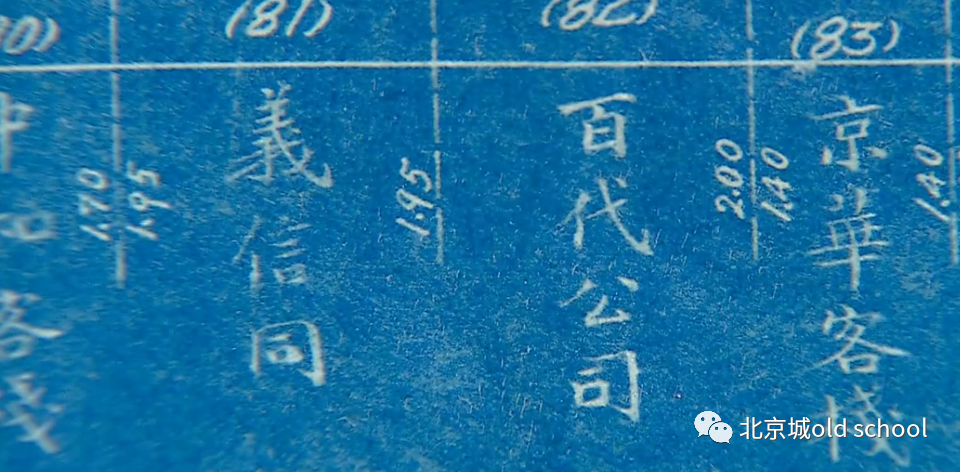 (81)
(82)
(83)
1.70
1.95
義信同
1.95
百代公司
2.00
1.40
京華客棧
1.40
北京城old school